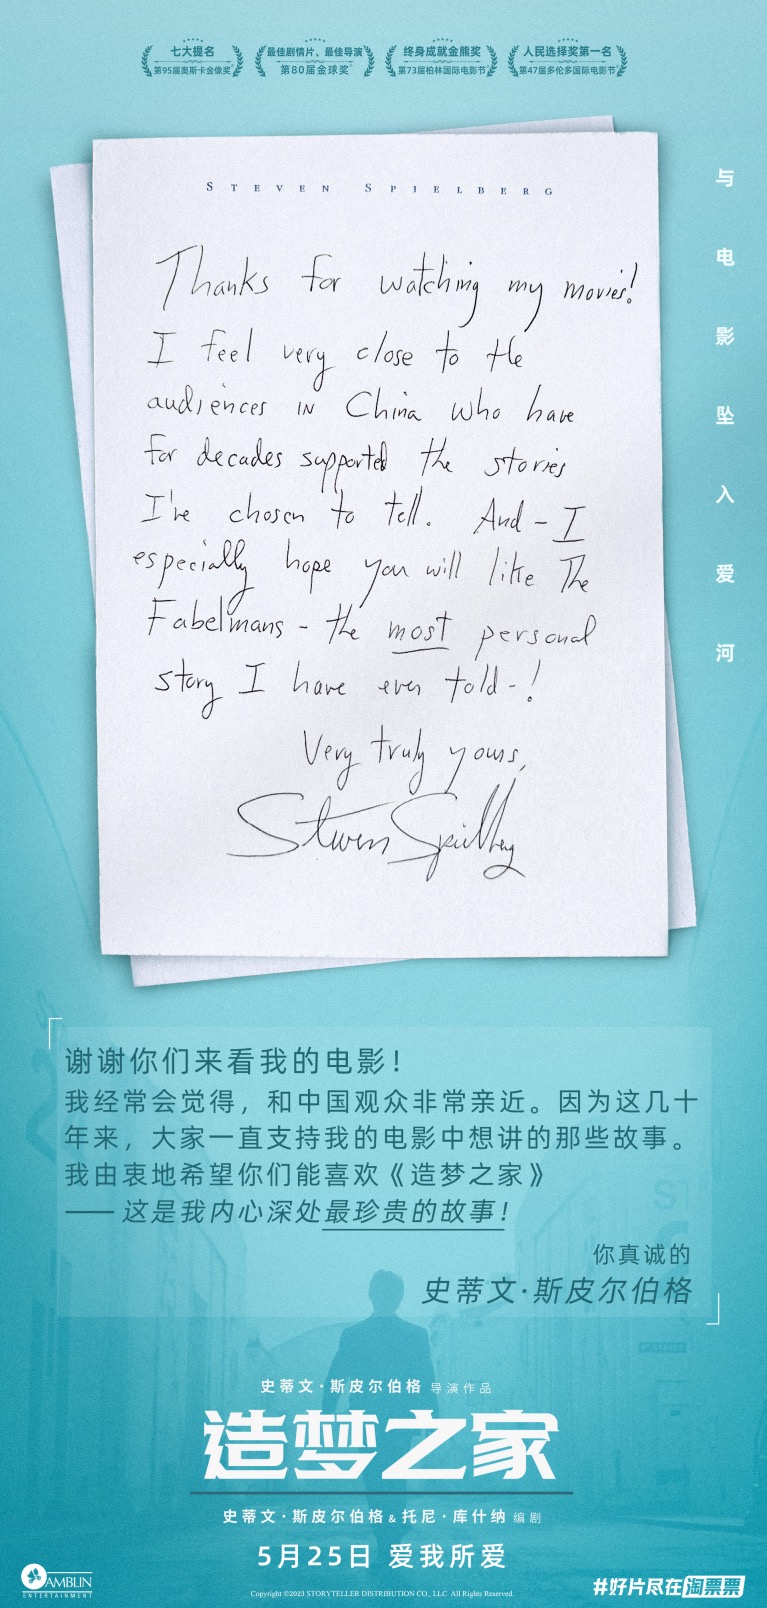 七大提名
第95届奥斯卡金像奖
最佳剧情片、最佳导演
第80届金球奖
终身成就金熊奖
第73届柏林国际电影节
人民选择奖第一名
第47届多伦多国际电影节
STEVEN SPIELBERG
Thanks for watching my movies!
I feel very close to the
audiences in China who have
for decades supported the stories
I've chosen to tell. And – I
especially hope you will like The
Fabelmans - the most personal
story I have ever told -!
Very truly yours,
Steven Spielberg
与电影坠入爱河
谢谢你们来看我的电影！
我经常会觉得，和中国观众非常亲近。因为这几十
年来，大家一直支持我的电影中想讲的那些故事。
我由衷地希望你们能喜欢《造梦之家》
—— 这是我内心深处最珍贵的故事！
你真诚的
史蒂文·斯皮尔伯格
史蒂文·斯皮尔伯格 导演作品
造梦之家
史蒂文·斯皮尔伯格 & 托尼·库什纳 编剧
5月25日 爱我所爱
AMBLIN
ENTERTAINMENT
Copyright ©2023 STORYTELLER DISTRIBUTION CO., LLC All Rights Reserved.
#好片尽在淘票票